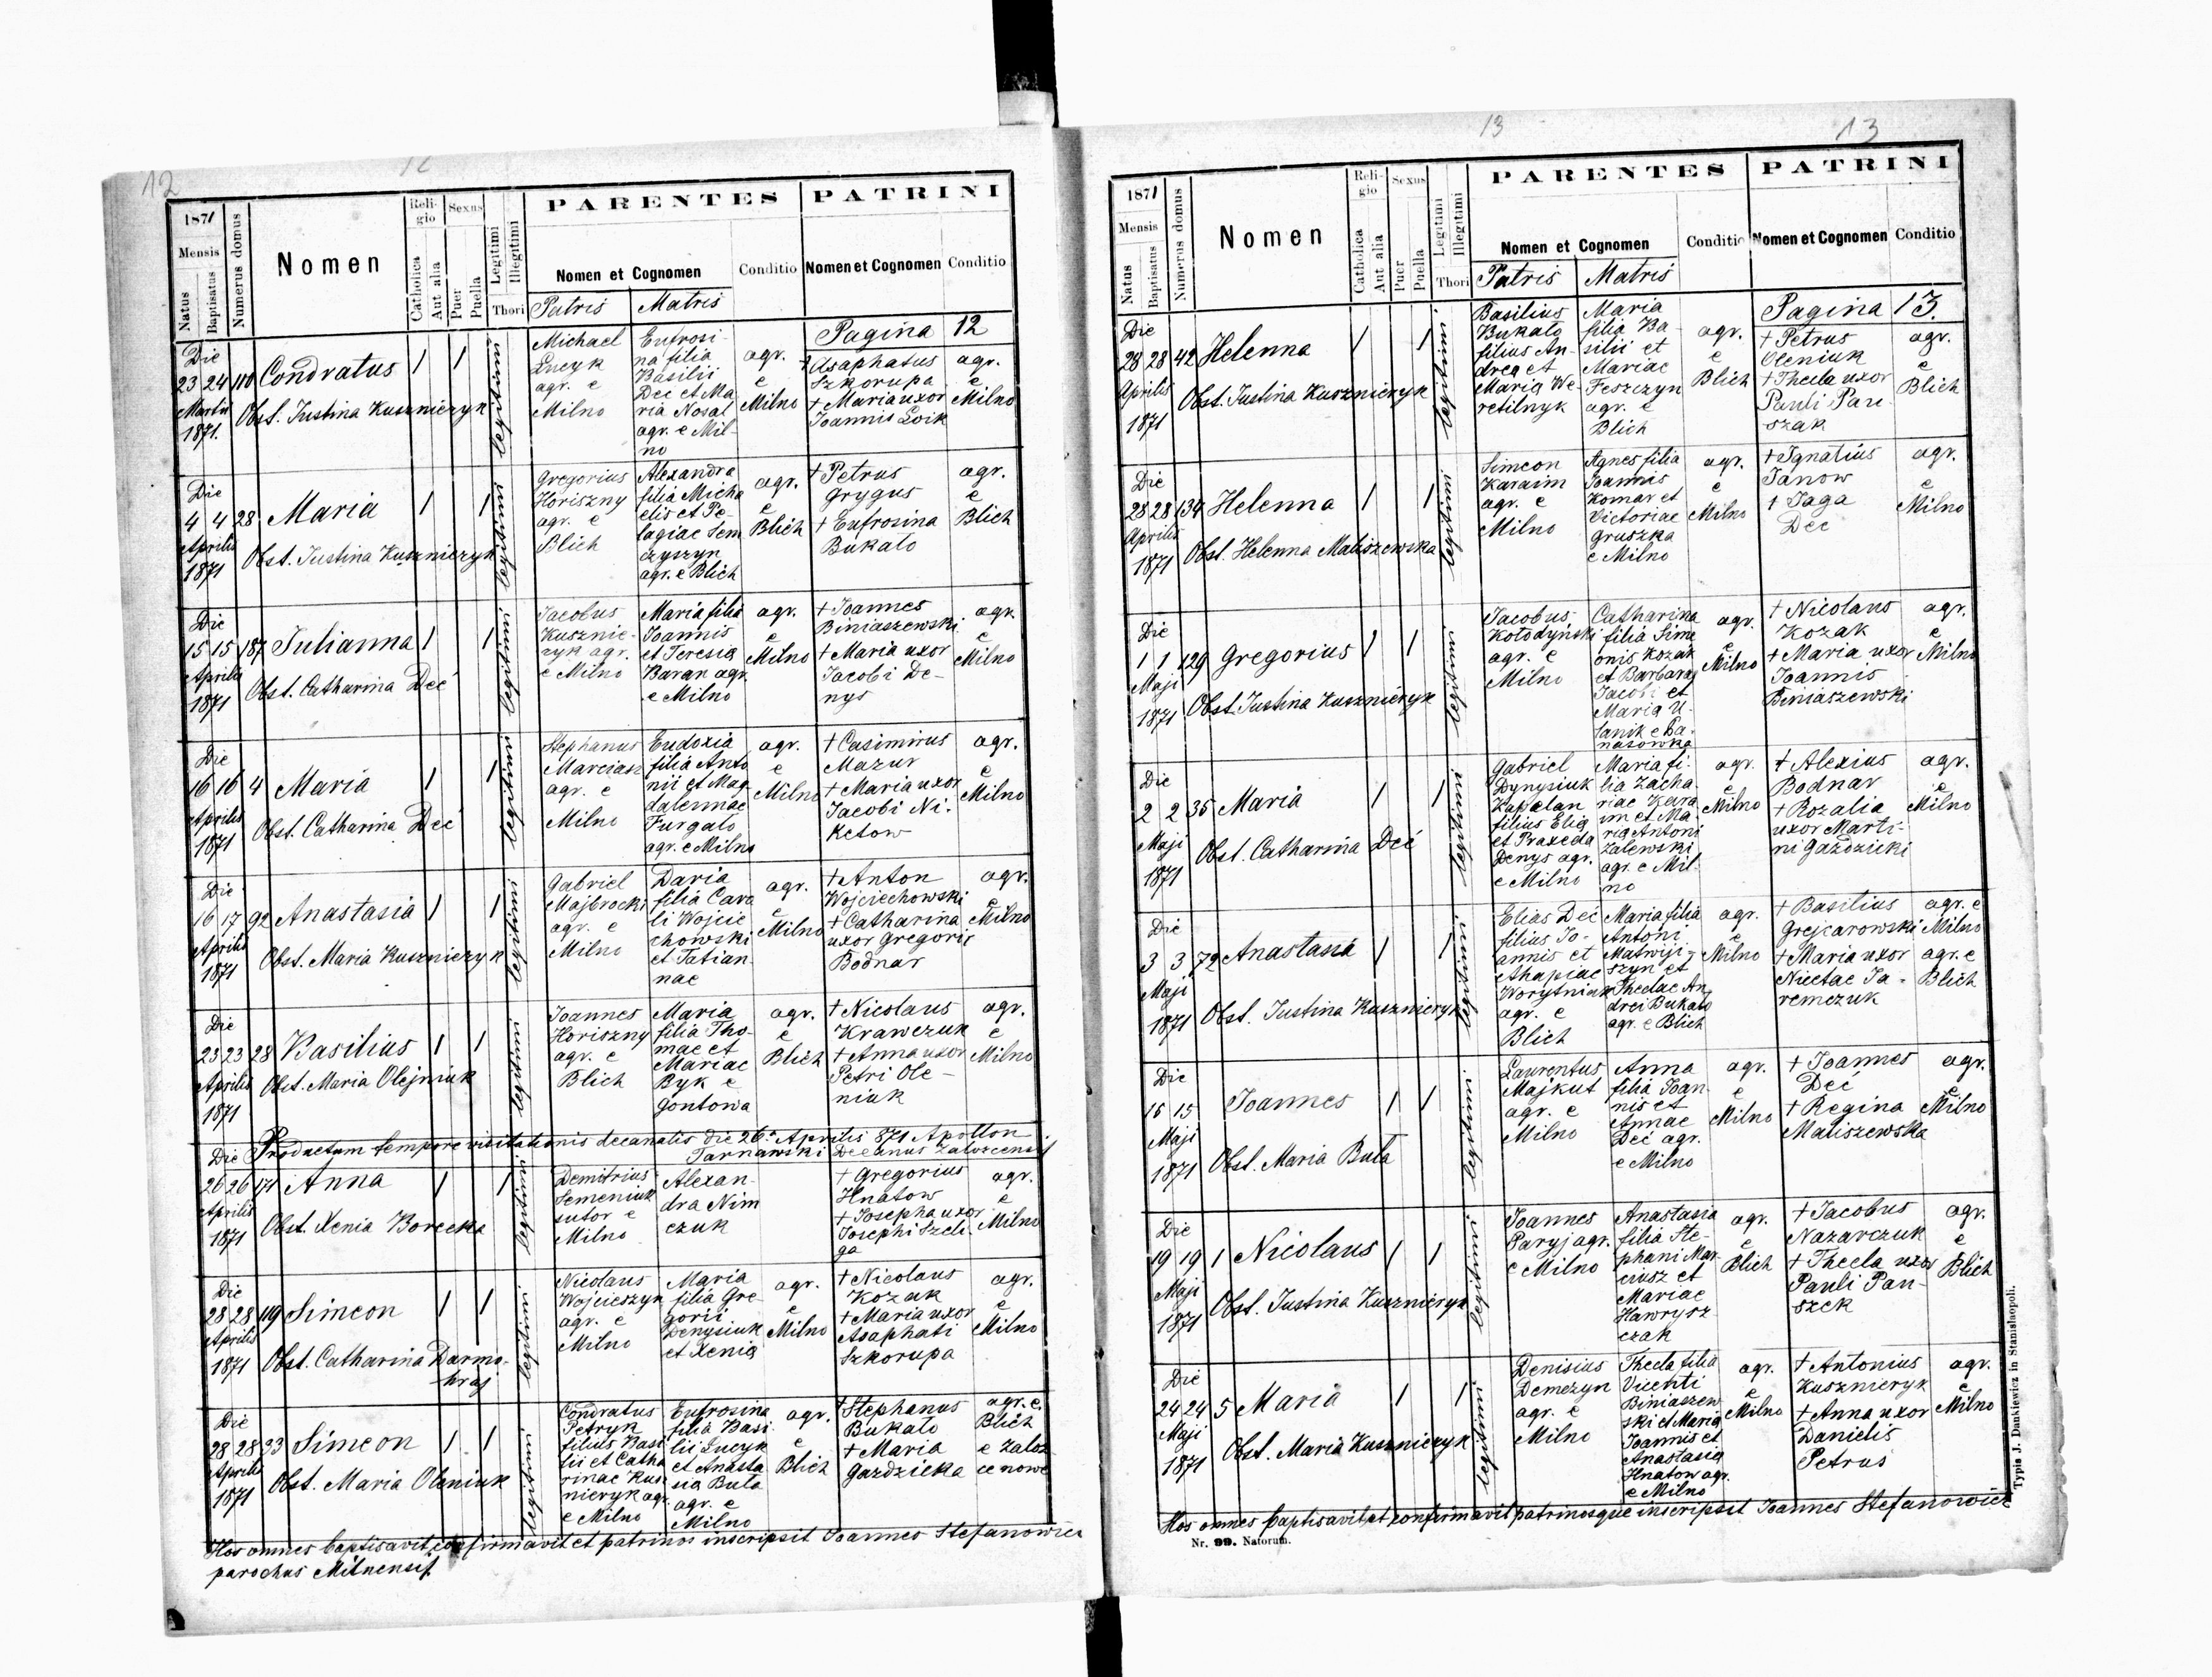 12
12
1871
Mensis
Natus
Baptisatus
Numerus domus
Nomen
Religio
Catholica
Aut alia
Sexus
Puer
Puella
Legitimi
Illegitimi
Thori
PARENTES
Nomen et Cognomen
Patris
Matris
Conditio
PATRINI
Nomen et Cognomen
Conditio
Pagina 12
Die
23 24 110 Condratus 1 1
Martii
1871.
Obst. Justina Kusznieryk
legitimi
Michael
Lucyk
agr. e
Milno
Eufrosi-
na filia
Basilii
Dec et Ma
ria Nosal
agr. e Mil-
no
agr.
e
Milno
† Asaphatus
Szkorupa
† Maria uxor
Joannis Loik
agr.
e
Milno
Die
4 4 28 Maria 1 1
Aprilis
1871
Obst. Justina Kusznieryk
legitimi
Gregorius
Horiszny
agr. e
Blich
Alexandra
filia Micha
elis et Pe-
lagiae Sem
czyszyn
agr. e Blich
agr.
e
Blich
† Petrus
Grygus
† Eufrosina
Bukato
agr.
e
Blich
Die
15 15 187 Julianna 1 1
Aprilis
1871
Obst. Catharina Deć
legitimi
Jacobus
Kusznie-
ryk agr.
e Milno
Maria filia
Joannis
et Teresia
Baran agr.
e Milno
agr.
e
Milno
† Joannes
Biniaszewski
† Maria uxor
Jacobi De-
nys
agr.
e
Milno
Die
16 16 4 Maria 1 1
Aprilis
1871
Obst. Catharina Deć
legitimi
Stephanus
Marciasz
agr. e
Milno
Eudoxia
filia Anto
nii et Mag
dalennae
Furgato
agr. e Milno
agr.
e
Milno
† Casimirus
Mazur
† Maria uxor
Jacobi Ni-
ketow
agr.
e
Milno
Die
16 17 92 Anastasia 1 1
Aprilis
1871
Obst. Maria Kusznieryk
legitimi
Gabriel
Majbrocki
agr. e
Milno
Daria
filia Caro
li Wojcie
chowski
et Tatian-
nae
agr.
e
Milno
† Anton
Wojciechowski
† Catharina
uxor Gregorii
Bodnar
agr.
e
Milno
Die
23 23 28 Basilius 1 1
Aprilis
1871
Obst. Maria Olejniuk
legitimi
Joannes
Horiszny
agr. e
Blich
Maria
filia Tho-
mae et
Mariae
Byk e
Gontowa
agr.
e
Blich
† Nicolaus
Krawczuk
† Anna uxor
Petri Ole-
niuk
agr.
e
Milno
Productum tempore visitationis decanalis die 26. Aprilis 871 Apollon
Tarnawski Decanus Zalozcensis
Die
26 26 171 Anna 1 1
Aprilis
1871
Obst. Xenia Borecka
legitimi
Demitrius
Semeniuk
sutor e
Milno
Alexan-
dra Nim
czuk
† Gregorius
Hnatow
† Josepha uxor
Josephi Szeli-
ga
agr.
e
Milno
Die
28 28 119 Simeon 1 1
Aprilis
1871
Obst. Catharina Darmo-
hraj
legitimi
Nicolaus
Wojcieszyn
agr. e
Milno
Maria
filia Gre-
gorii
Denysiuk
et Xenia
agr.
e
Milno
† Nicolaus
Kozak
† Maria uxor
Asaphati
Szkorupa
agr.
e
Milno
Die
28 28 33 Simeon 1 1
Aprilis
1871
Obst. Maria Oleniuk
legitimi
Condratus
Petryk
filius Basi
lii et Catha
rinae Kusz
nieryk agr.
e Milno
Eufrosina
filia Basi
lii Lucyk
et Anasta
sia Buta
agr. e
Milno
agr.
e
Blich
† Stephanus
Bukato
† Maria
Gazdzicka
agr. e
Blich
e Zaloz
ce nowe
Hos omnes baptisavit, confirmavit et patrinos inscripsit Joannes Stefanowicz
parochus Milnensis
13
13
1871
Mensis
Natus
Baptisatus
Numerus domus
Nomen
Religio
Catholica
Aut alia
Sexus
Puer
Puella
Legitimi
Illegitimi
Thori
PARENTES
Nomen et Cognomen
Patris
Matris
Conditio
PATRINI
Nomen et Cognomen
Conditio
Pagina 13.
Die
28 28 42 Helenna 1 1
Aprilis
1871
Obst. Justina Kusznieryk
legitimi
Basilius
Bukato
filius An-
drea et
Maria We-
retilnyk
Maria
filia Ba-
silii et
Mariae
Feszczyn
agr. e
Blich
agr.
e
Blich
† Petrus
Oleniuk
† Thecla uxor
Pauli Pan
szak
agr.
e
Blich
Die
28 28 134 Helenna 1 1
Aprilis
1871
Obst. Helenna Maliszewska
legitimi
Simeon
Karaim
agr. e
Milno
Agnes filia
Joannis
Komar et
Victoriae
Gruszka
e Milno
agr.
e
Milno
† Ignatius
Janow
† Jaga
Dec
agr.
e
Milno
Die
1 1 129 Gregorius 1 1
Maji
1871
Obst. Justina Kusznieryk
legitimi
Jacobus
Kołodyński
agr. e
Milno
Catharina
filia Sime
onis Kozak
et Barbara
Jacobi et
Maria U-
lanik e Pa-
nasowka
agr.
e
Milno
† Nicolaus
Kozak
† Maria uxor
Joannis
Biniaszewski
agr.
e
Milno
Die
2 2 35 Maria 1 1
Maji
1871
Obst. Catharina Deć
legitimi
Gabriel
Dynysiuk
Kapelan
filius Elia
et Praxeda
Denys agr.
e Milno
Maria fi-
lia Zacha-
riae Kara
im et Ma-
ria Antoni
Zalewski
agr. e Mil-
no
agr.
e
Milno
† Alexius
Bodnar
† Rozalia
uxor Marti-
ni Gaździcki
agr.
e
Milno
Die
3 3 72 Anastasia 1 1
Maji
1871
Obst. Justina Kusznieryk
legitimi
Elias Deć
filius Jo-
annis et
Ahapiae
Worytniuk
agr. e
Blich
Maria filia
Antoni
Matwiji-
szyn et
Theclae An
drei Bukato
agr. e Blich
agr.
e
Milno
† Basilius
Grejcarowski
† Maria uxor
Nicetae Ja-
remczuk
agr. e
Milno
agr. e
Blich
Die
15 15 Joannes 1 1
Maji
1871
Obst. Maria Buta
legitimi
Laurentus
Majkut
agr. e
Milno
Anna
filia Joan-
nis et
Annae
Deć agr.
e Milno
agr.
e
Milno
† Joannes
Deć
† Regina
Maliszewska
agr.
e
Milno
Die
19 19 1 Nicolaus 1 1
Maji
1871
Obst. Justina Kusznieryk
legitimi
Joannes
Paryj agr.
e Milno
Anastasia
filia Ste-
phani Mar-
ciusz et
Mariae
Hawrysz-
czak
agr.
e
Blich
† Jacobus
Nazarczuk
† Thecla uxor
Pauli Pan-
szek
agr.
e
Blich
Die
24 24 5 Maria 1 1
Maji
1871
Obst. Maria Kusznieryk
legitimi
Denisius
Demczyn
agr. e
Milno
Thecla filia
Vicenti
Biniaszew
ski et Maria
Joannis et
Anastasia
Hnatow agr.
e Milno
agr.
e
Milno
† Antonius
Kusznieryk
† Anna uxor
Danielis
Petrus
agr.
e
Milno
Hos omnes baptisavit et confirmavit patrinosque inscripsit Joannes Stefanowicz
Nr. 99. Natorum.
Typis J. Dankiewicz in Stanislaopoli.